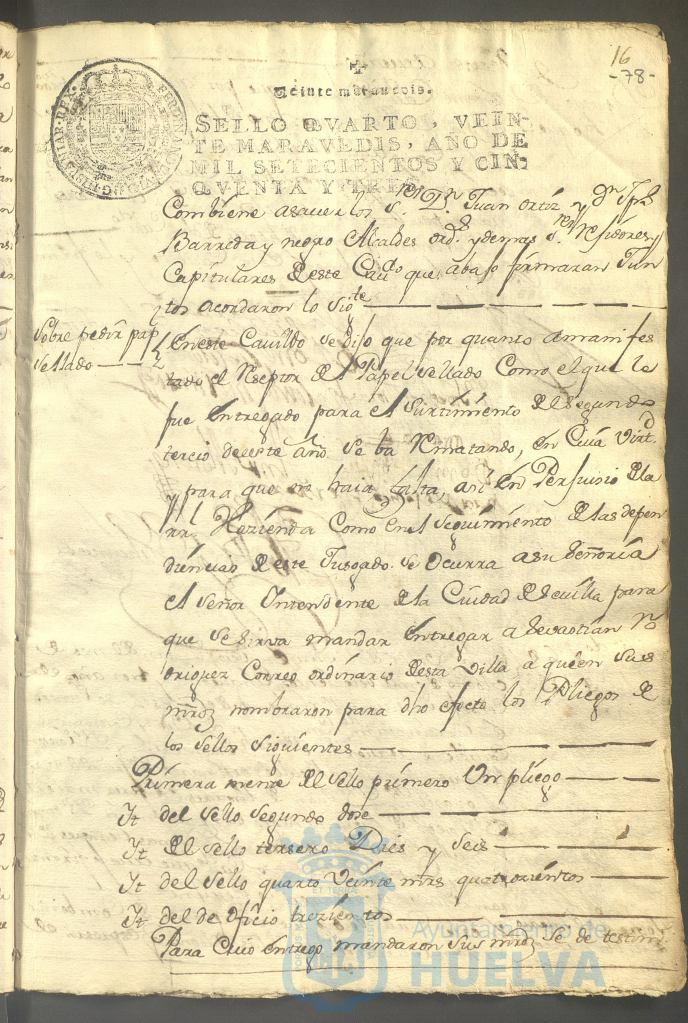 16
-78-
Veinte maravedis.
SELLO QVARTO, VEIN-
TE MARAVEDIS, AÑO DE
MIL SETECIENTOS Y CIN-
QVENTA Y TRES
Combiene asauer los S.res Dn Juan ortiz y dn Jph
Barreda y negro Alcaldes ord.s y demas S.res rejidores
Capitulares deeste Cau.do que abajo firmaran Jun
tos acordaron lo sig.te
Sobre pedir pap.l
Sellado
En este Cauildo se dijo que por quanto a manifes
tado el Reseptor del Papel sellado Como el que le
fue entregado para el Surtimiento del segundo
tercio de este año se ba Rematando, en Cuia virt.d
y para que no haia falta, asi en Perjuisio dela
Rl Hazienda Como en el seguimiento de las depen
diencias de este Jusgado se Ocurra a su señoria
el señor Yntendente dela Ciudad de Seuilla para
que se sirva mandar entregar a Sevastian Ro
driguez Correo ordinario desta Villa a quien sus
mrds nombraron para dho efecto los Pliegos de
los sellos siguientes
Primera mente del sello primero Un pliego
Yt del sello segundo dose
Yt del sello tersero Dies y seis
Yt del sello quarto Veinte mrs quatrozientos
Yt del de oficio trezientos
Para Cuio entrego mandaron sus mrds se de testim
Ayuntamiento de
HUELVA